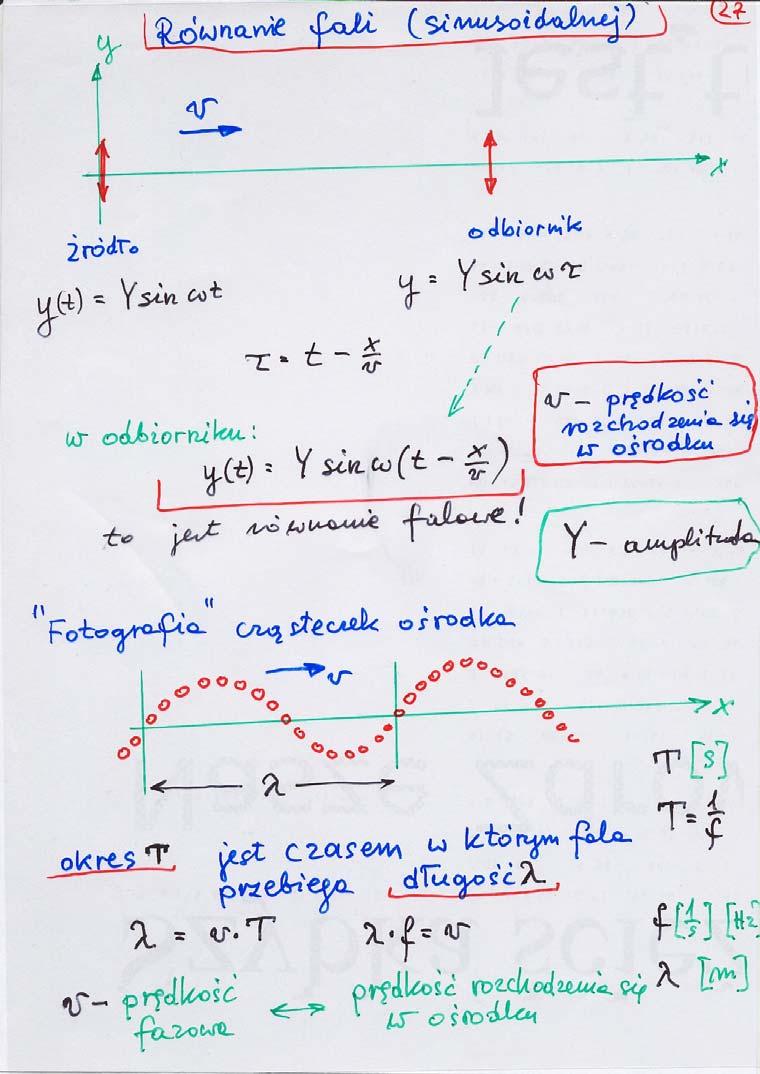 27
Równanie fali (sinusoidalnej)
y
v
x
źródło
odbiornik
y(t) = Y sin ωt
y = Y sin ω τ
τ = t - x/v
v - prędkość
rozchodzenia się
w ośrodku
w odbiorniku:
y(t) = Y sin ω(t - x/v)
to jest równanie falowe!
Y - amplituda
"Fotografia" cząsteczek ośrodka
v
x
λ
T [s]
T = 1/f
okres T jest czasem w którym fala
przebiega długość λ
λ = v·T λ·f = v
f [1/s] [Hz]
λ [m]
v - prędkość
fazowa
↔
prędkość rozchodzenia się
w ośrodku